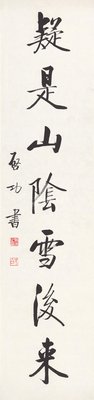 疑是山陰雪後来
啓功書